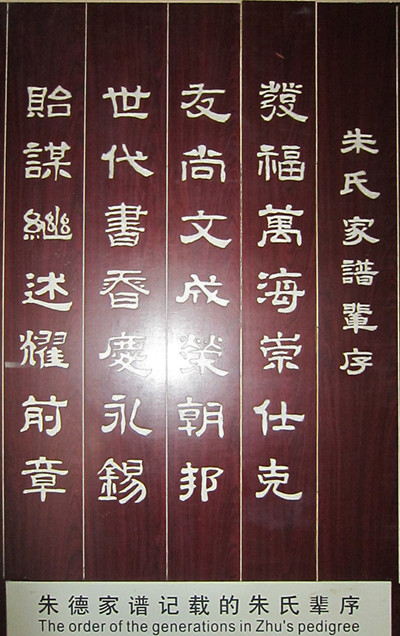 朱氏家譜輩序
發福萬海崇仕克
友尚文成榮朝邦
世代書香慶永錫
貽謀繼述耀前章
朱德家谱记载的朱氏辈序
The order of the generations in Zhu's pedigree